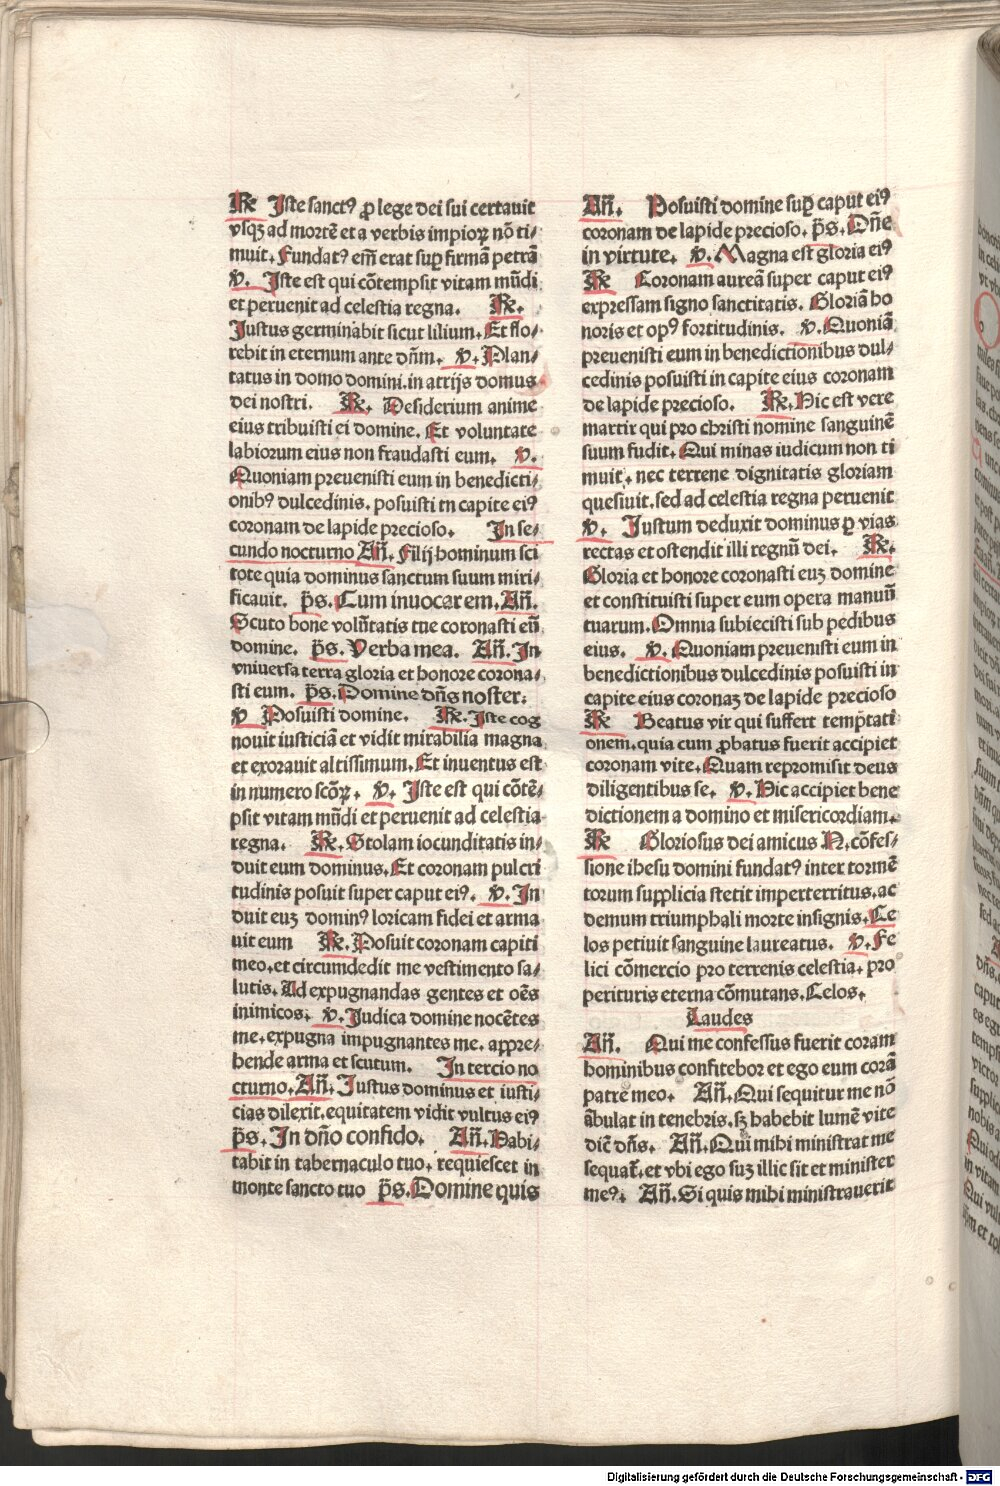 R̃e Iste sanctꝰ ꝓ lege dei sui certauit
vsqꝫ ad mortē et a verbis impioꝝ nō ti/
muit. Fundatꝰ em̄ erat suꝑ firmā petrā
v̄. Iste est qui cōtempsit vitam mūdi
et peruenit ad celestia regna. R̃e.
Iustus germinabit sicut lilium. Et flo/
rebit in eternum ante dn̄m. v̄. Plan/
tatus in domo domini.in atrijs domus
dei nostri. R̃e. Desiderium anime
eius tribuisti ei domine. Et voluntate
labiorum eius non fraudasti eum. v̄.
Quoniam preuenisti eum in benedicti/
onibꝰ dulcedinis. posuisti tn capite eiꝰ
coronam de lapide precioso. In se/
cundo nocturno Añ. Filij hominum sci
tote quia dominus sanctum suum miri/
ficauit. p̄s. Cum inuocarem. Añ.
Scuto bone volūtatis tue coronasti eū
domine. p̄s. Verba mea. Añ. In
vniuersa terra gloria et honore corona/
sti eum. p̄s. Domine dn̄s noster.
v̄ Posuisti domine. R̃e. Iste cog
nouit iusticiā et vidit mirabilia magna
et exorauit altissimum. Et inuentus est
in numero scōꝝ. v̄. Iste est qui cōtē/
psit vitam mūdi et peruenit ad celestia
regna. R̃e. Stolam iocunditatis in/
duit eum dominus. Et coronam pulcri
tudinis posuit super caput eiꝰ. v̄. In
duit euꝫ dominꝰ loricam fidei et arma
uit eum R̃e. Posuit coronam capiti
meo. et circumdedit me vestimento sa/
lutis. Ad expugnandas gentes et oēs
inimicos. v̄. Iudica domine nocētes
me. expugna impugnantes me. appre/
hende arma et scutum. In tercio no
cturno. Añ. Iustus dominus et iusti/
cias dilexit. equitatem vidit vultus eiꝰ
p̄s. In dn̄o confido. Añ. Habi/
tabit in tabernaculo tuo. requiescet in
monte sancto tuo p̄s. Domine quis
Añ. Posuisti domine suꝑ caput eiꝰ
coronam de lapide precioso. p̄s. Dn̄e
in virtute. v̄. Magna est gloria eiꝰ
R̃e Coronam aureā super caput eiꝰ
expressam signo sanctitatis. Gloriā ho
noris et opꝰ fortitudinis. v̄. Quoniā
preuenisti eum in benedictionibus dul/
cedinis posuisti in capite eius coronam
de lapide precioso. R̃e. Hic est vere
martir qui pro christi nomine sanguinē
suum fudit. Qui minas iudicum non ti
muit. nec terrene dignitatis gloriam
quesiuit. sed ad celestia regna peruenit
v̄. Iustum deduxit dominus ꝑ vias
rectas et ostendit illi regnū dei. R̃e.
Gloria et honore coronasti euꝫ domine
et constituisti super eum opera manuū
tuarum. Omnia subiecisti sub pedibus
eius. v̄. Quoniam preuenisti eum in
benedictionibus dulcedinis posuisti in
capite eius coronaꝫ de lapide precioso
R̃e Beatus vir qui suffert temptati
onem. quia cum ꝓbatus fuerit accipiet
coronam vite. Quam repromisit deus
diligentibus se. v̄. Hic accipiet bene
dictionem a domino et misericordiam.
R̃e Gloriosus dei amicus N. cōfes/
sione ihesu domini fundatꝰ inter tormē
torum supplicia stetit imperterritus. ac
demum triumphali morte insignis. Ce
los petiuit sanguine laureatus. v̄. Fe
lici cōmercio pro terrenis celestia. pro
perituris eterna cōmutans. Celos.
Laudes
Añ. Qui me confessus fuerit coram
hominibus confitebor et ego eum corā
patre meo. Añ. Qui sequitur me nō
ābulat in tenebris. sꝫ habebit lumē vite
dic̄ dn̄s. Añ. Qui mihi ministrat me
sequat̄. et vbi ego suꝫ illic sit et minister
meꝰ. Añ. Si quis mihi ministrauerit
Digitalisierung gefördert durch die Deutsche Forschungsgemeinschaft - DFG